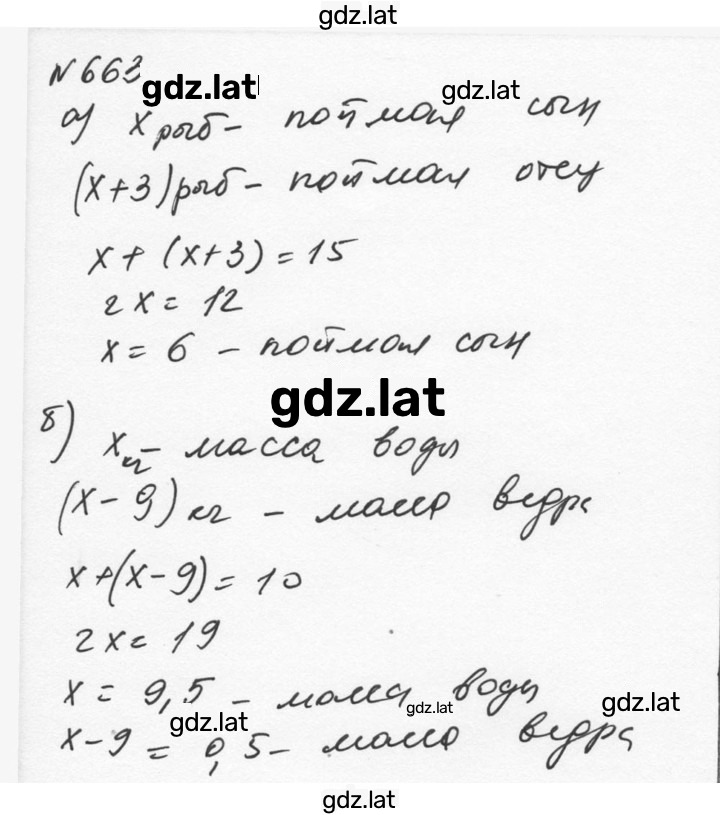 gdz.lat
N 663
gdz.lat
gdz.lat
а) x рыб - поймал сын
(x+3) рыб - поймал отец
x + (x+3) = 15
2x = 12
x = 6 - поймал сын
gdz.lat
б) x кг - масса воды
(x-9) кг - масса ведра
x+(x-9) = 10
2x = 19
x = 9,5 - масса воды
gdz.lat
gdz.lat
gdz.lat
x-9 = 0,5 - масса ведра
gdz.lat